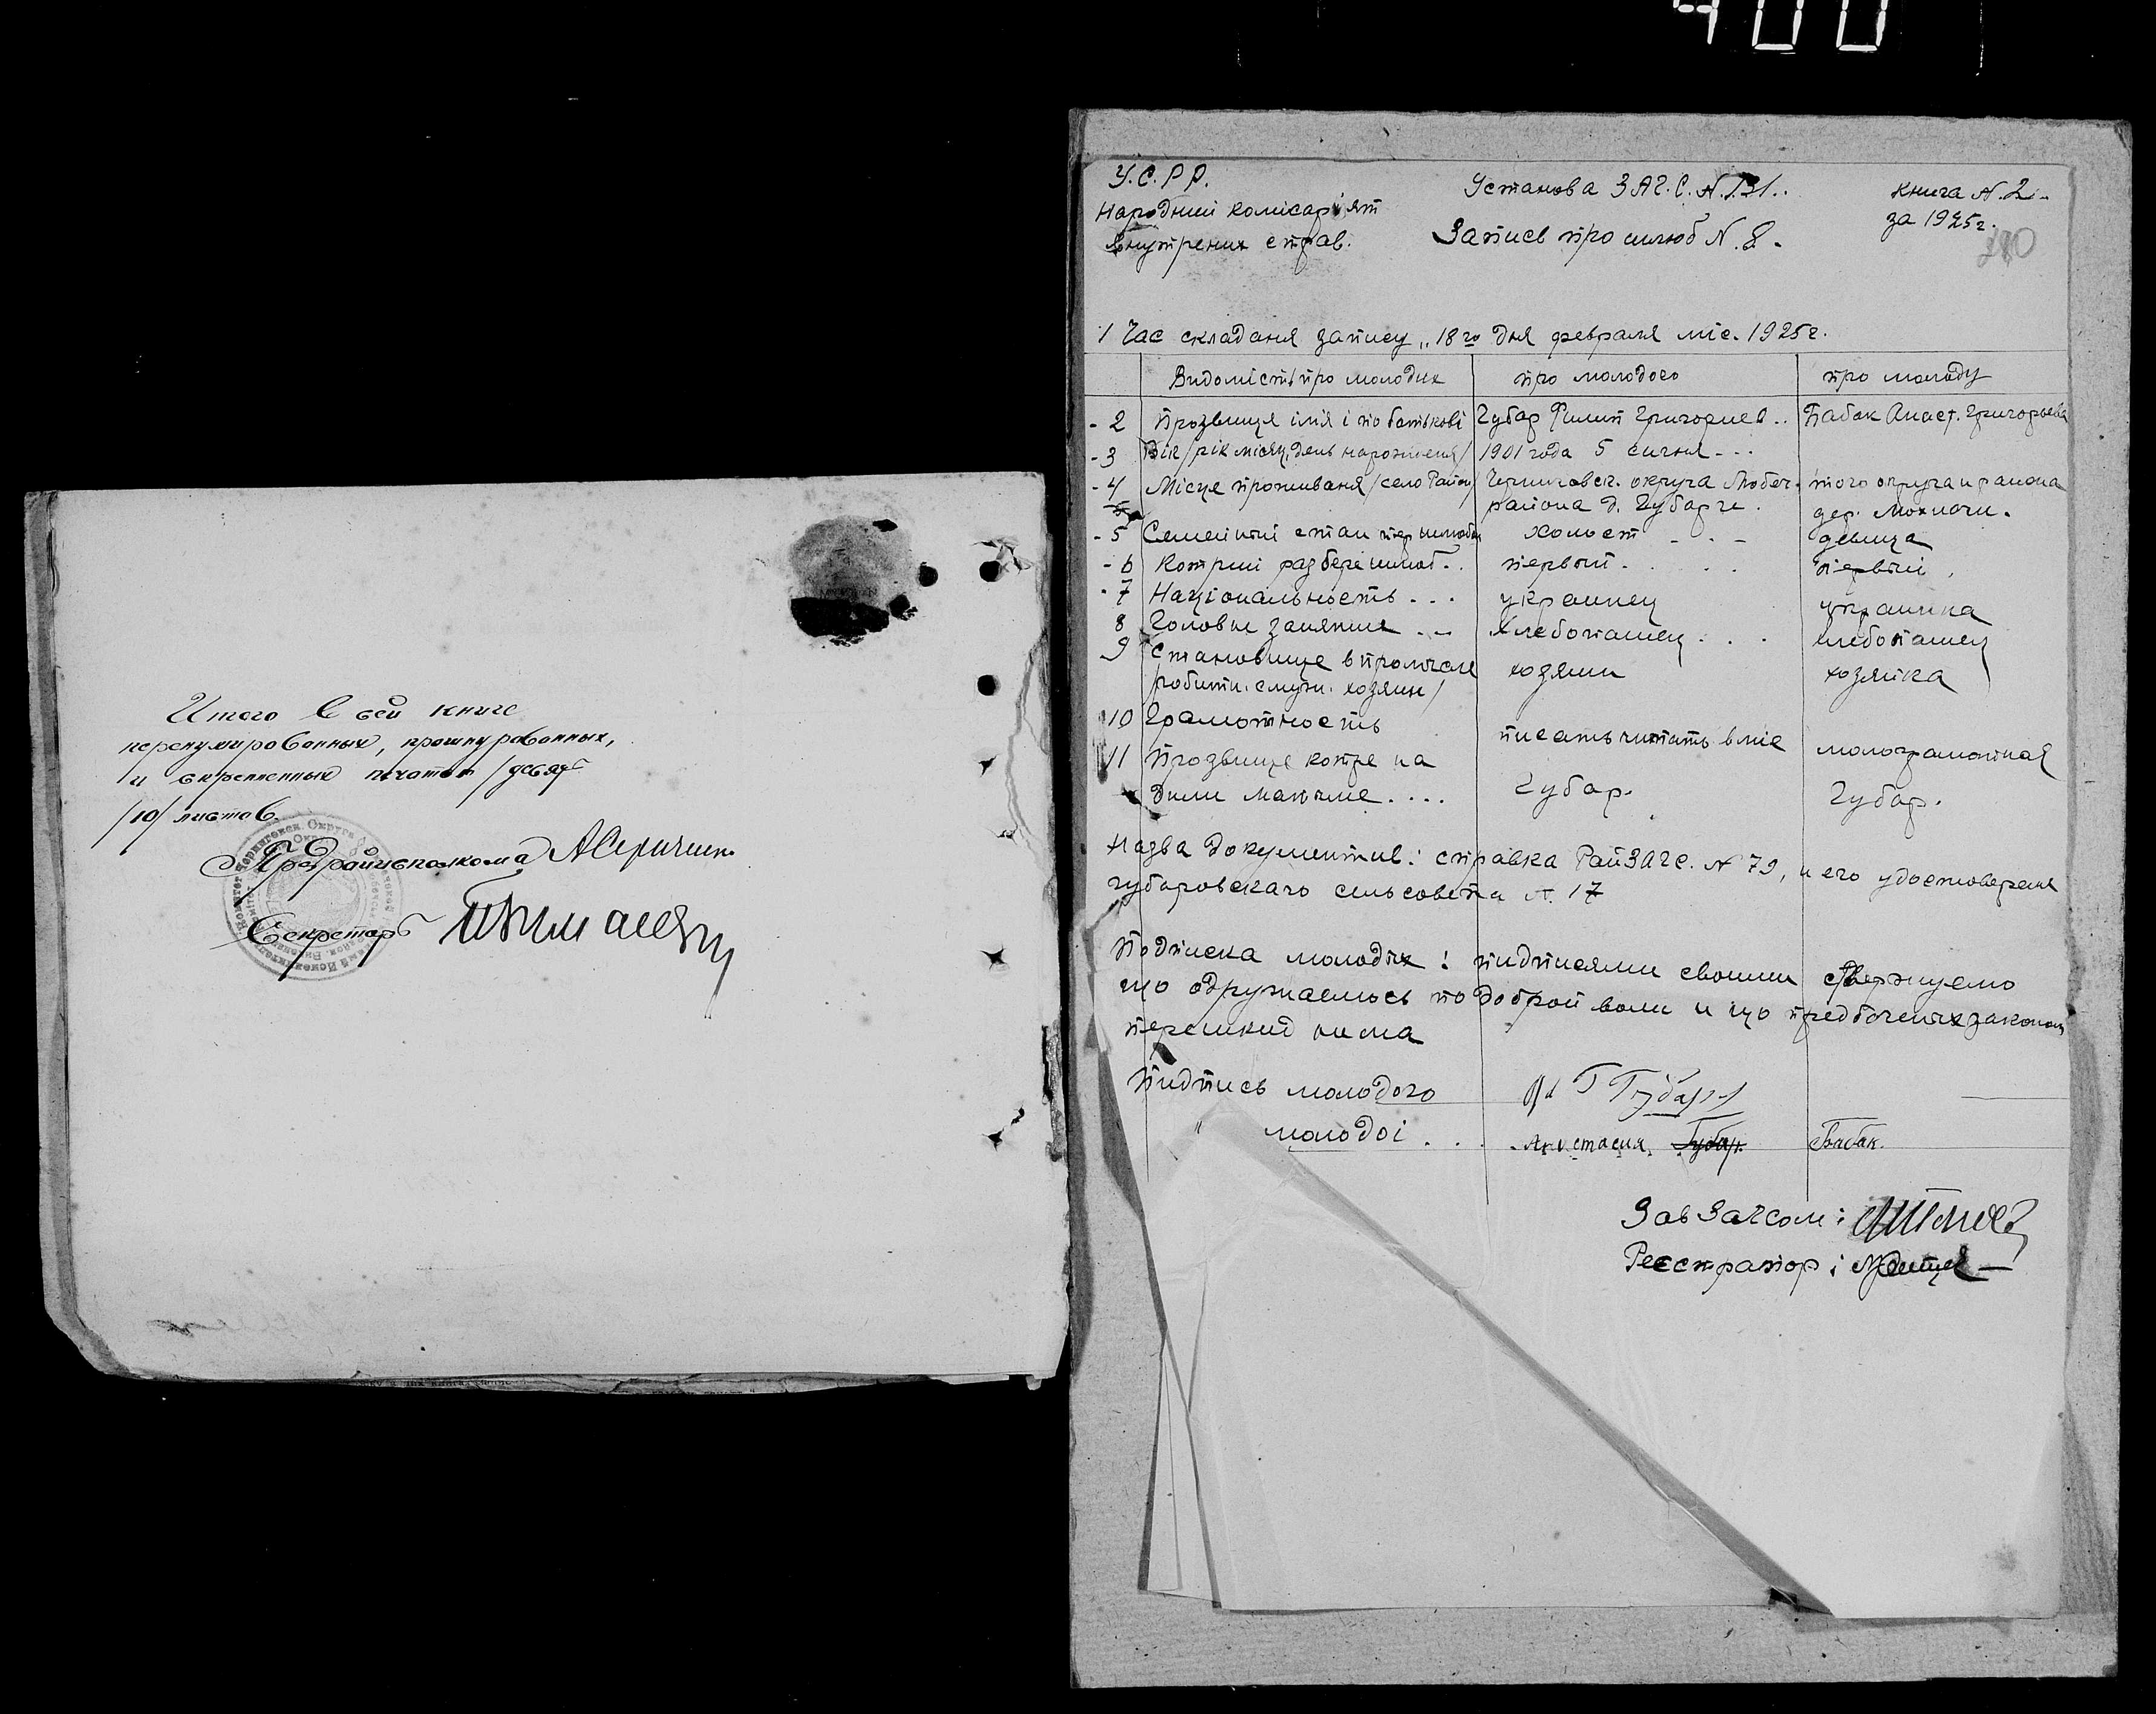 400
Итого в сей книге
перенумированных, прошнурованных,
и скрепленных печатью /десят
/10/ листов.
Предрайисполкома
Секретарь
У.С.Р.Р.
Народний комісаріят
внутрених справ.
Установа ЗАГ.С. N.131..
Запись про шлюб N. 8.
книга N. 2.
за 1925г.
1 Час складаня запису „18го дня февраля міс. 1925г.
Видомість про молодих про молодого про молоду
2 Прозвище імя і по батькові Губар Филип Григориев.. Бабак Анаст. Григорьева
3 Вік /рік місяц, день нарожненя/ 1901 года 5 сичня - - -
4 Місце проживаня /село Район/ Черниговск. округа Любеч. того округа и района
района д. Губаричи. дер. Мохначи.
5 Семейний стан пер шлюбом холост - . - девица
6 Котрий раз бере шлюб.. первый. . . . . первый
7 Національность . . . украинец украинка
8 Головне занятие . . . хлебопашец . . . хлебопашец
9 становище в промисле
/робитн. служ. хозяин/ хозяин хозяйка
10 Грамотность писать читать вміе малограмотная
11 Прозвище котре на
дили макиме . . . . Губар. Губар.
Назва документив: справка РайЗАГС. N 79, и его удостоверения
губаровскаго сельсовета N. 17
Подписка молодых: пидписями своими ствержуемо
що одружаемось по доброй воли и що предбаченых законом
перешкид нима
Пидпись молодого Губарь
" молодоі . . . Анастасия Губар Бабак.
Зав Загсом:
Реєстратор: